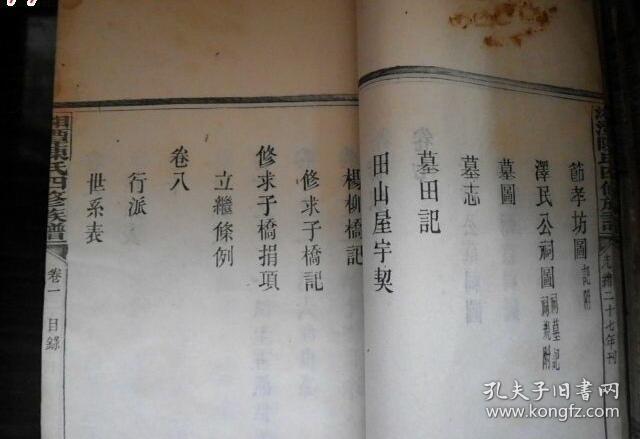 節孝坊圖記附
澤民公祠圖祠墓記祠規附
墓圖
墓志
墓田記
田山屋宇契
楊柳橋記
修求子橋記
修求子橋捐項
立繼條例
卷八
行派
世系表
湘潭陳氏四修族譜
卷一 目錄
民國二十七年刊
孔夫子旧书网
www.kongfz.com